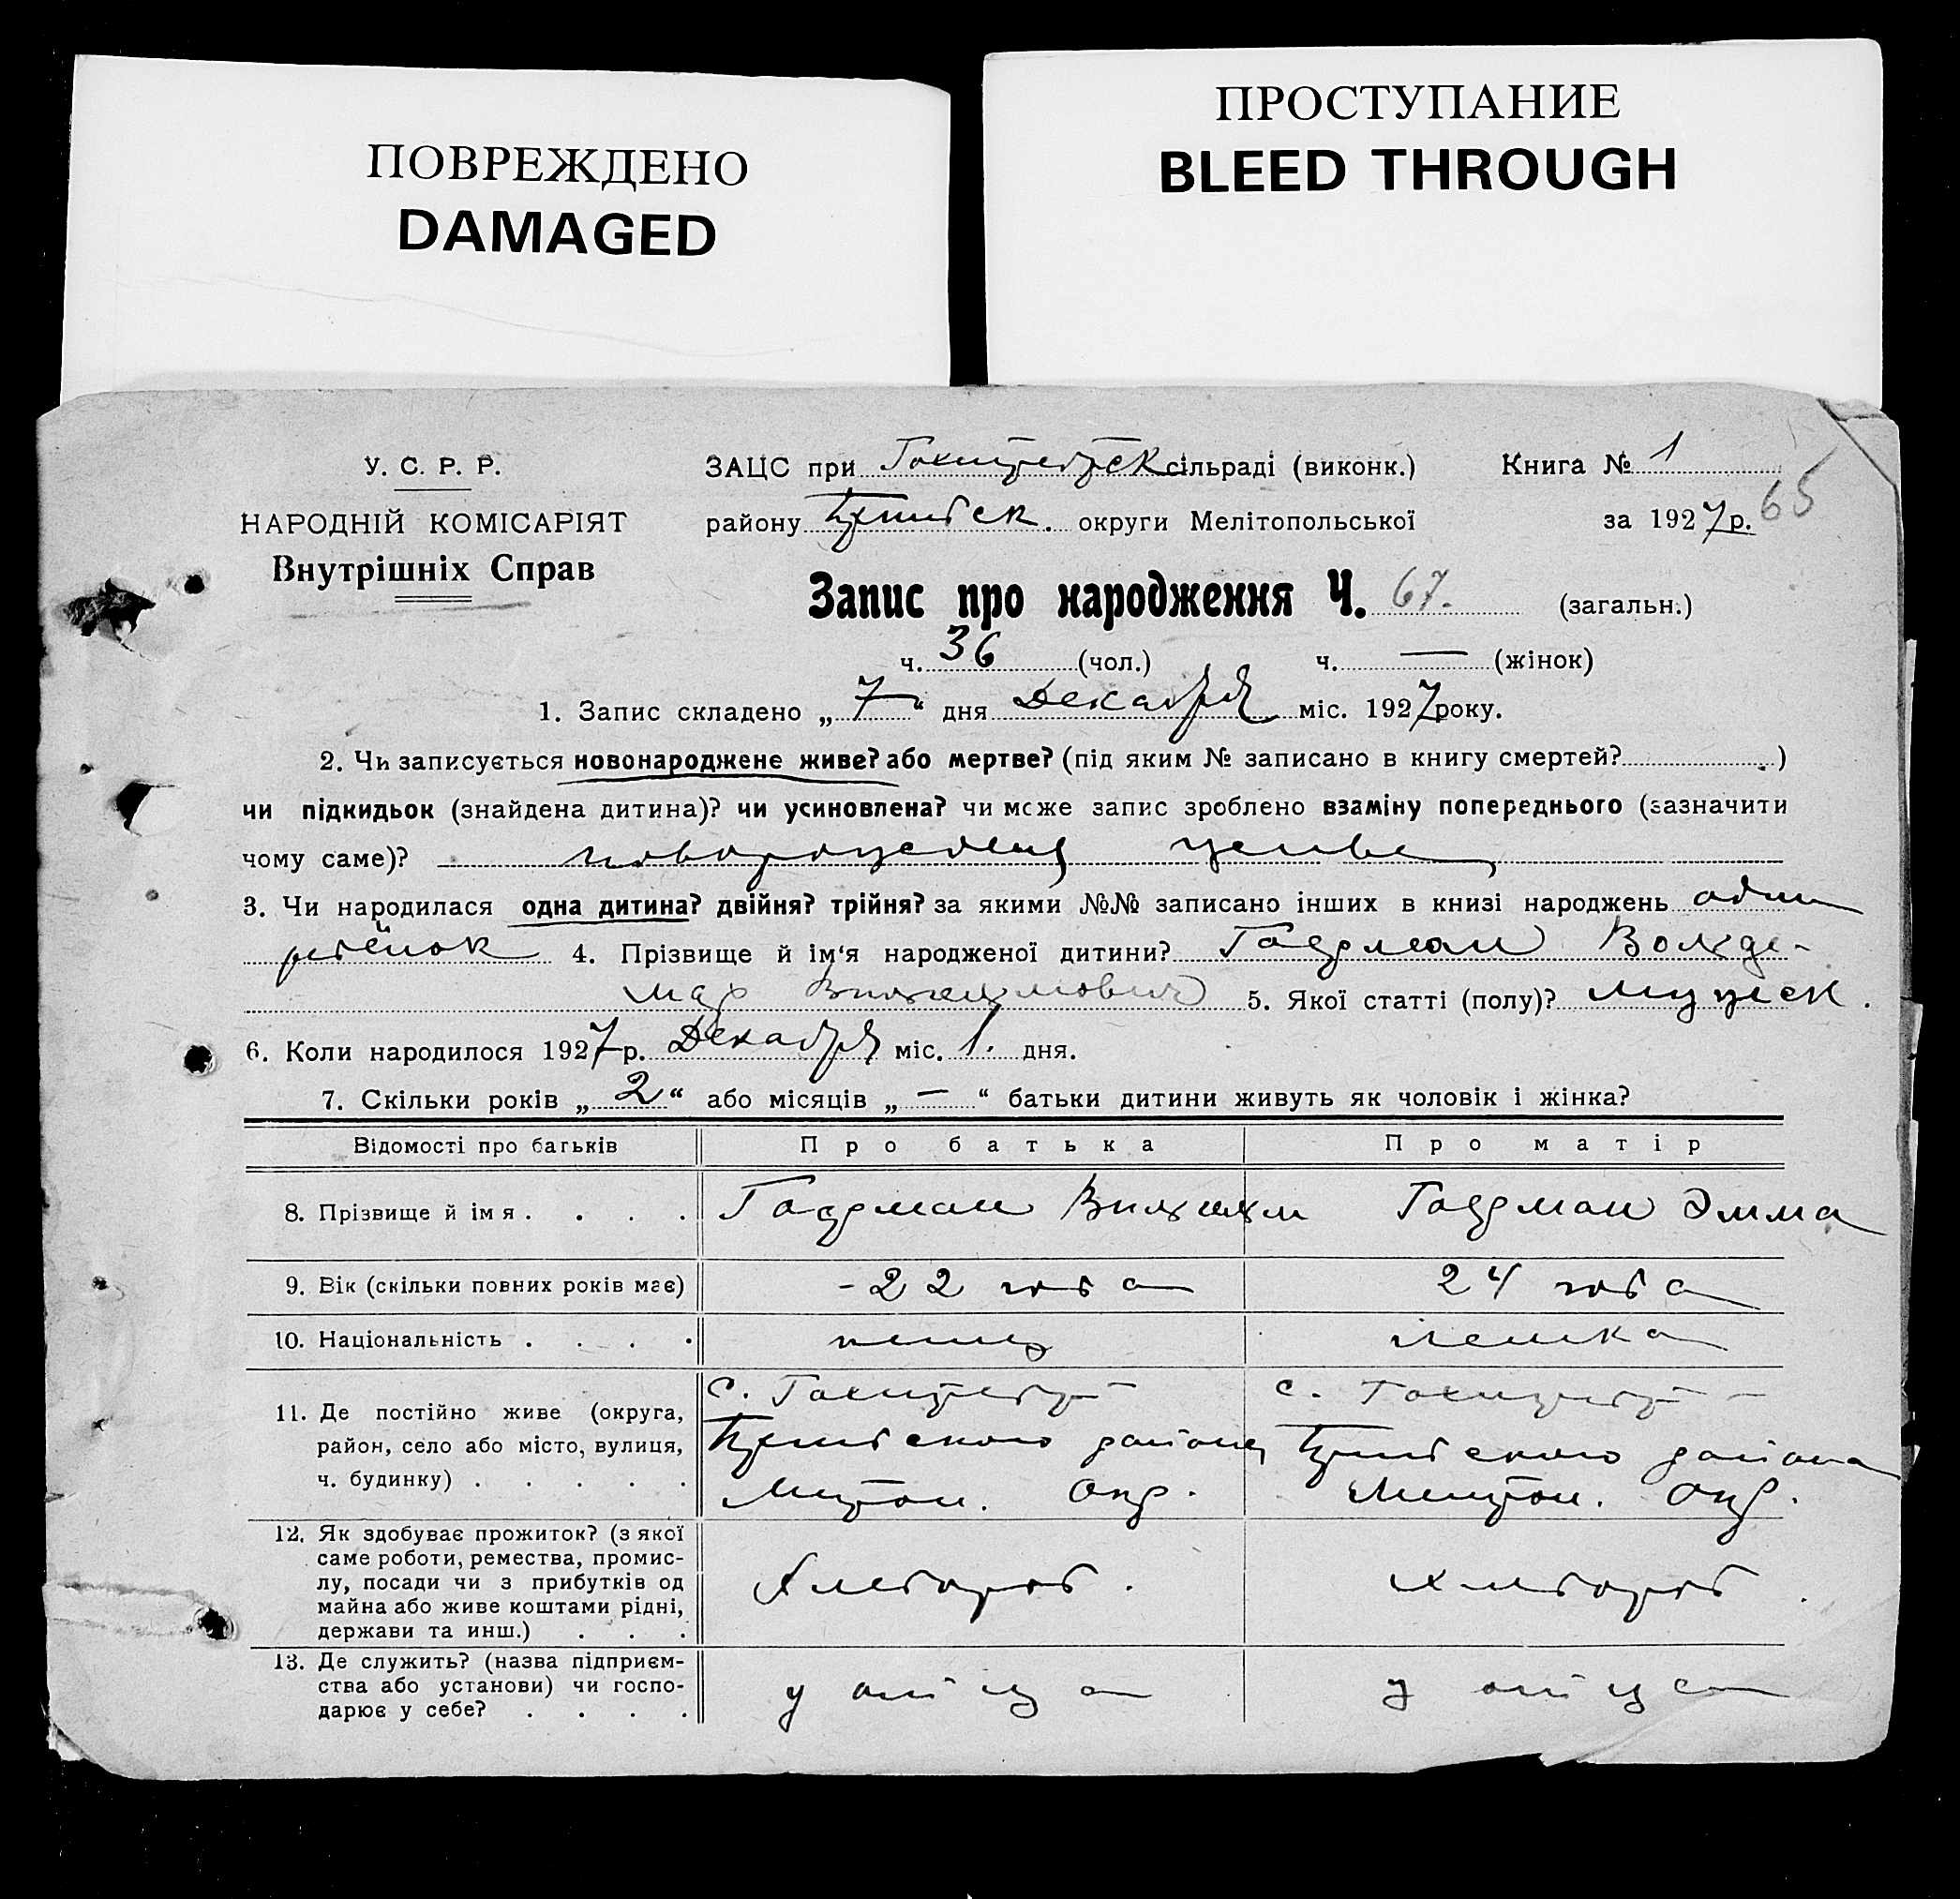 ПОВРЕЖДЕНО
DAMAGED
ПРОСТУПАНИЕ
BLEED THROUGH
У. С. Р. Р.
НАРОДНІЙ КОМІСАРІЯТ
Внутрішніх Справ
ЗАЦС при Гохштедтск сільраді (виконк.)
району округи Мелітопольської
Книга № 1
за 1927 р. 65
Запис про народження Ч. 67. (загальн.)
ч. 36 (чол.) ч. — (жінок)
1. Запис складено „ 7 “ дня Декабря міс. 1927 року.
2. Чи записується новонароджене живе? або мертве? (під яким № записано в книгу смертей? )
чи підкидьок (знайдена дитина)? чи усиновлена? чи може запис зроблено взаміну попереднього (зазначити
чому саме)?
3. Чи народилася одна дитина? двійня? трійня? за якими №№ записано інших в книзі народжень один
ребёнок 4. Прізвище й ім‘я народженої дитини? Вольде-
мар Вильгельмович 5. Якої статті (полу)? мужеск.
6. Коли народилося 1927 р. Декабря міс. 1. дня.
7. Скільки років „ 2 “ або місяців „ — “ батьки дитини живуть як чоловік і жінка?
Відомості про батьків Про батька Про матір
8. Прізвище й імя . . . . Вильгельм Эмма
9. Вік (скільки повних років має) - 22 года 24 года
10. Національність . . . . немец немка
11. Де постійно живе (округа, район, село або місто, вулиця, ч. будинку) . . . . .
с. Гохштедт
района
Мелитоп. Окр.
с. Гохштедт
района
Мелитоп. Окр.
12. Як здобуває прожиток? (з якої саме роботи, ремества, промис-
лу, посади чи з прибутків од
майна або живе коштами рідні,
держави та инш.) . . .
Хлебороб.
хлебороб.
13. Де служить? (назва підприєм-
ства або установи) чи госпо-
дарює у себе? . . . .
у отца
у отца